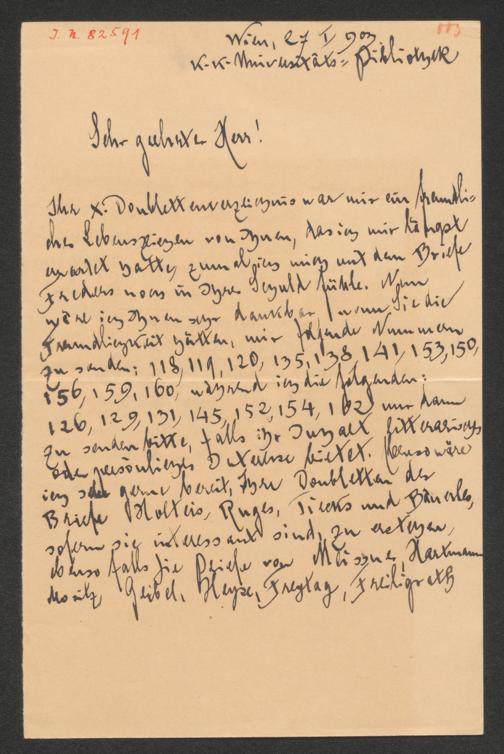 J. N. 82591
Wien, 27 I 903
K. K. Universitäts=Bibliothek
Sehr geehrter Herr!
Ihr X. Doublettenverzeichnis war mir ein freundli-
ches Lebenszeichen von Ihnen, das ich mir längst
erwartet hatte, zumal ich mich mit dem Briefe
Freders noch in Ihrer Schuld fühle. Nun
wäre ich Ihnen sehr dankbar, wenn Sie die
Freundlichkeit hätten, mir folgende Nummern
zu senden: 118, 119, 120, 135, 138, 141, 153, 150,
156, 159, 160, während ich die folgenden:
126, 129, 131, 145, 152, 154, 162 nur dann
zu senden bitte, falls ihr Inhalt litterarisches
oder persönliches Interesse bietet. Ebenso wäre
ich sehr gerne bereit, Ihre Doubletten der
Briefe Holteis, Ruges, Tiecks und Bäuerles,
sofern sie interessant sind, zu erstehen,
ebenso falls Sie Briefe von Meissner, Hartmann
Moritz, Geibel, Heyse, Freytag, Freiligrath